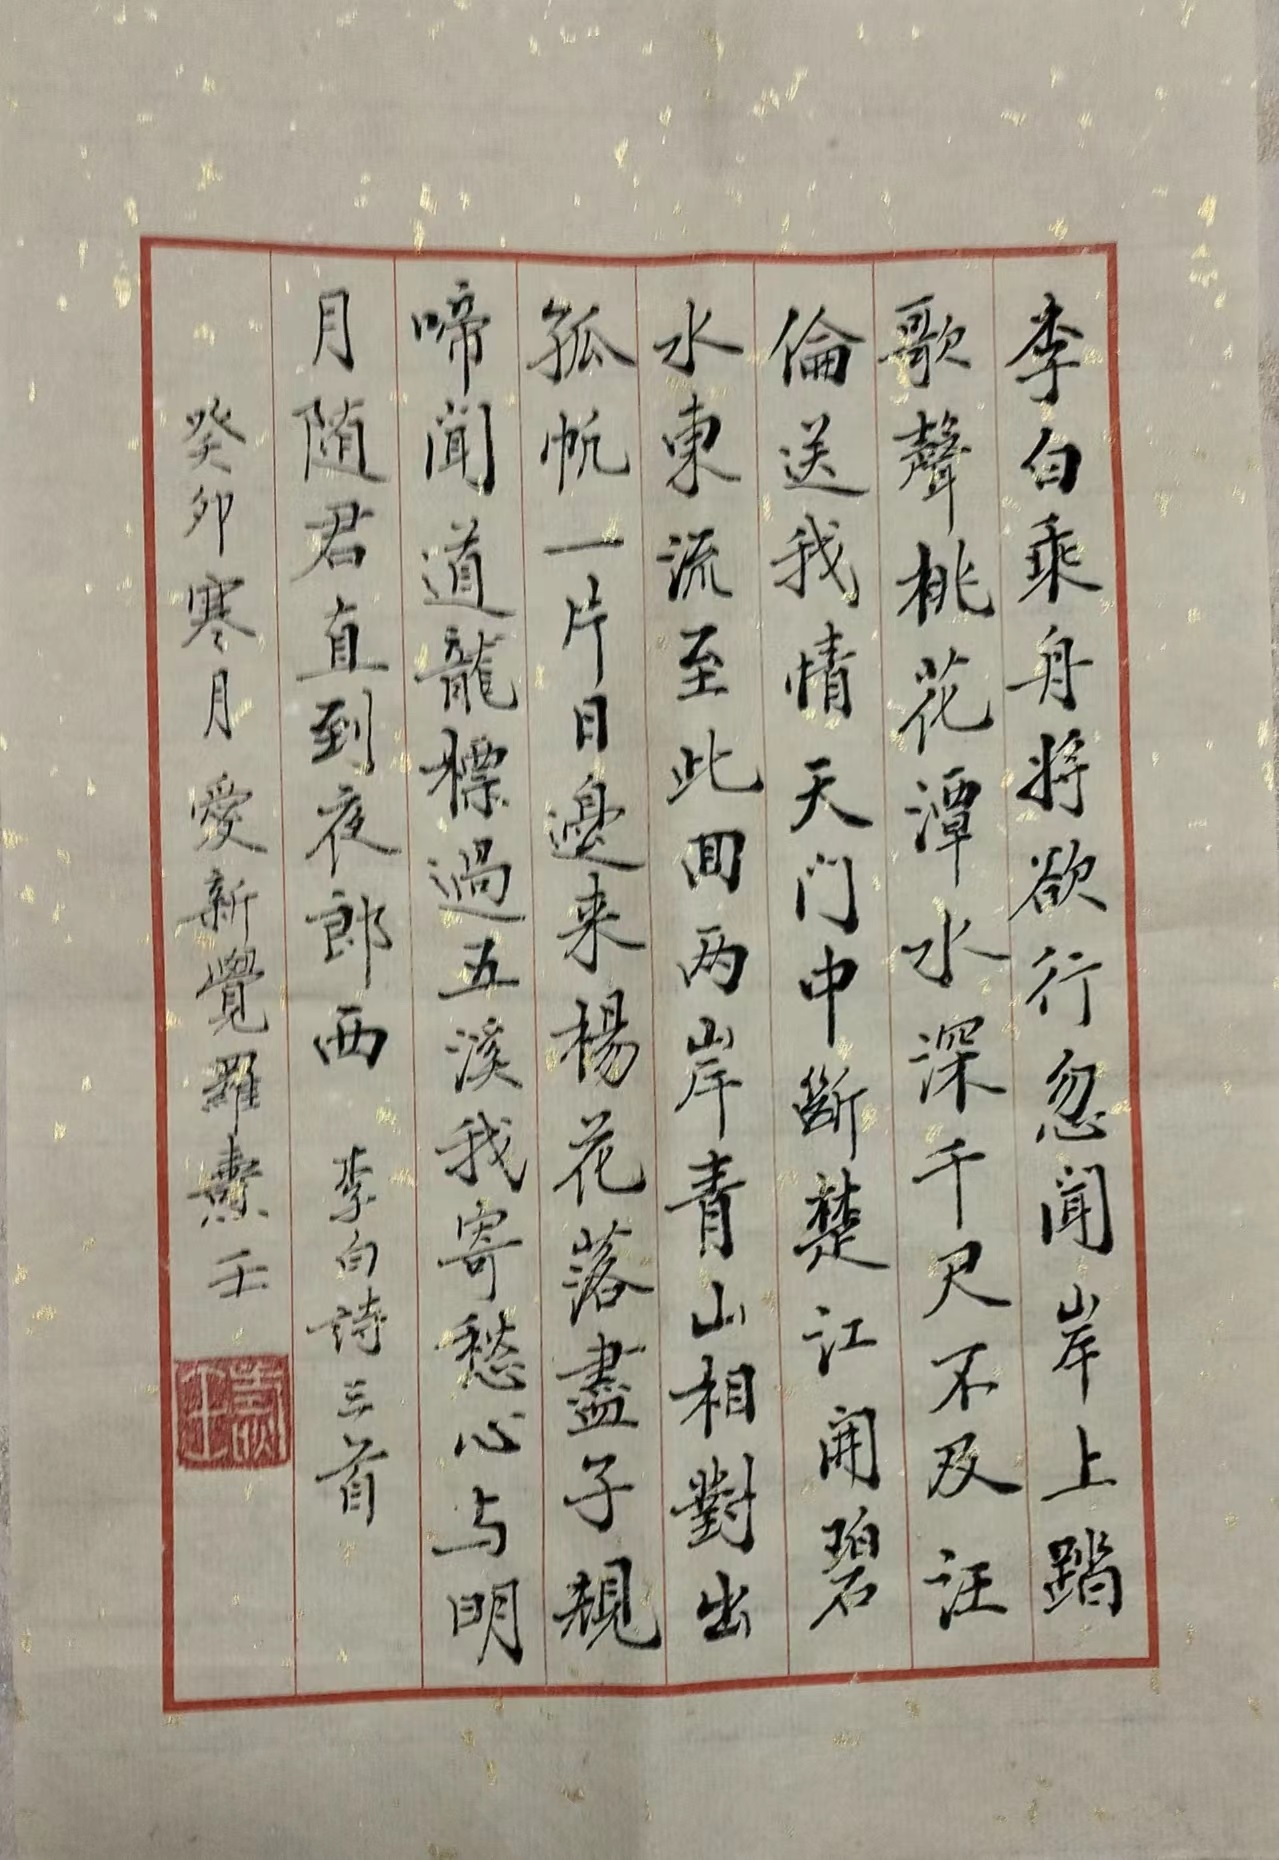 李白乘舟将欲行忽聞岸上踏
歌聲桃花潭水深千尺不及汪
倫送我情天门中斷楚江開碧
水東流至此回两岸青山相對出
孤帆一片日邊来楊花落盡子規
啼聞道龍標過五溪我寄愁心与明
月随君直到夜郎西 李白詩三首
癸卯寒月愛新覺羅燾壬
燾壬